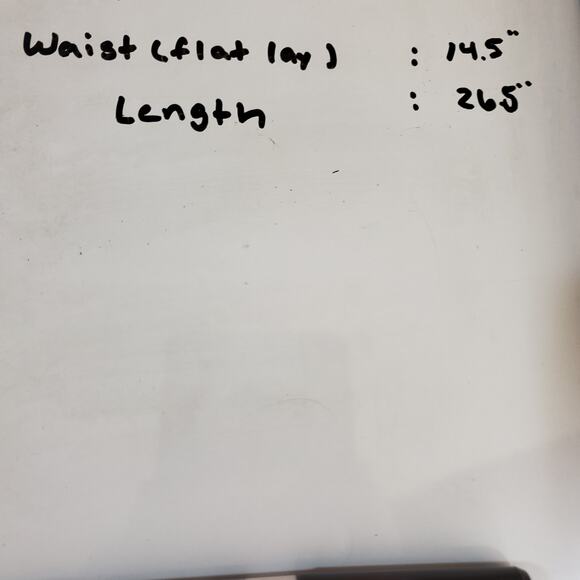 Waist (flat lay) : 14.5"
Length : 26.5"